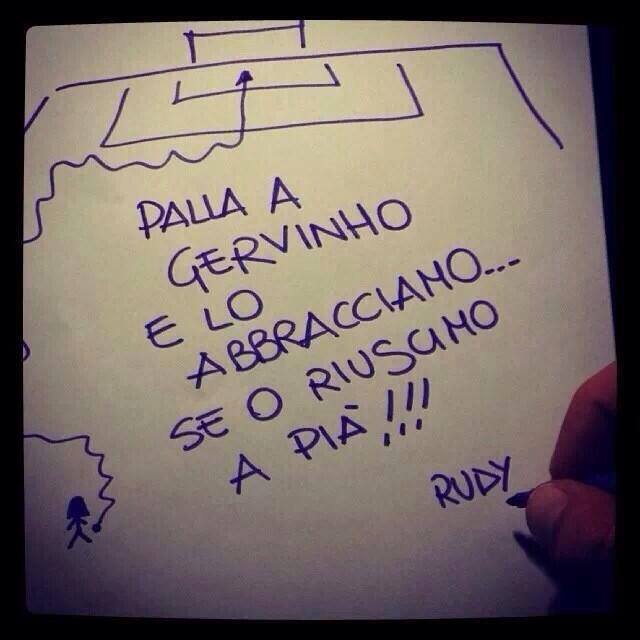 PALLA A
GERVINHO
E LO
ABBRACCIAMO...
SE O RIUSCIMO
A PIÀ!!!
RUDY